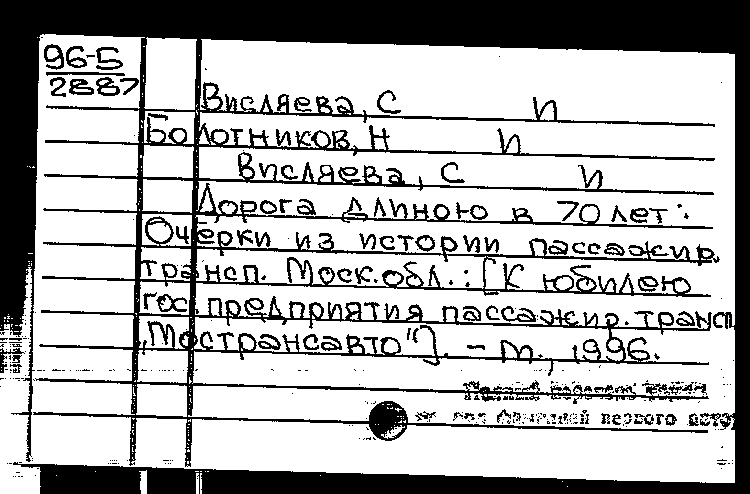 96-5
2887
Висляева, С И
Болотников, Н И
Висляева, С И
Дорога длиною в 70 лет:
Очерки из истории пассажир.
трансп. Моск. обл.: [К юбилею
гос. предприятия пассажир. трансп.
„Мострансавто"]. – М., 1996.
первого